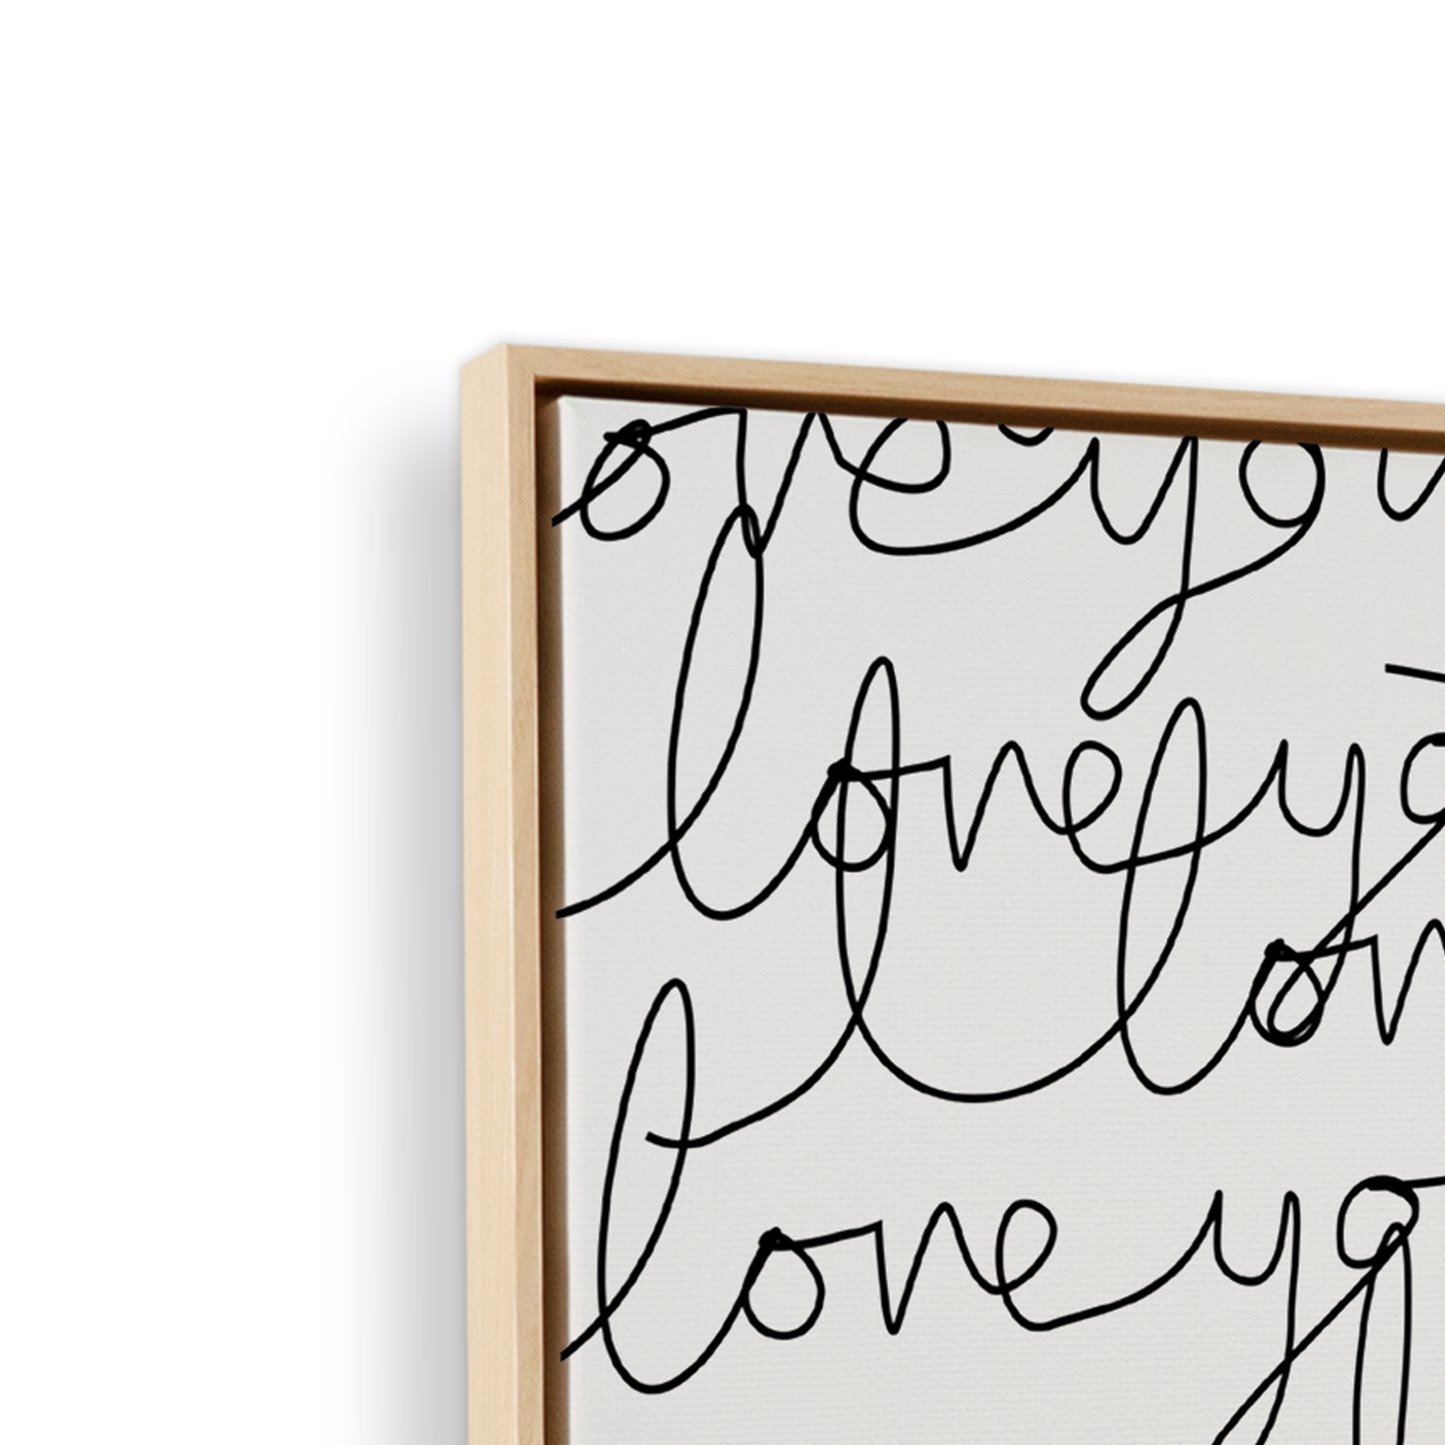 ove you
love you
I lov
love you